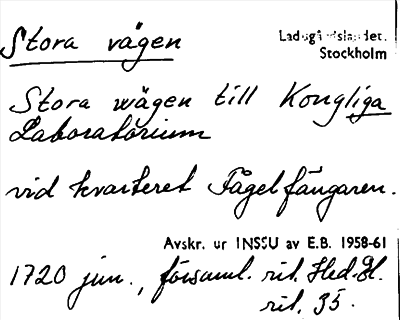 Stora vägen
Ladugårdslandet.
Stockholm
Stora wägen till Kongliga
Laboratorium
vid kvarteret Fågelfängaren.
Avskr. ur INSSU av E.B. 1958-61
1720 jun., församl. rit. Hed. El.
rit. 35.